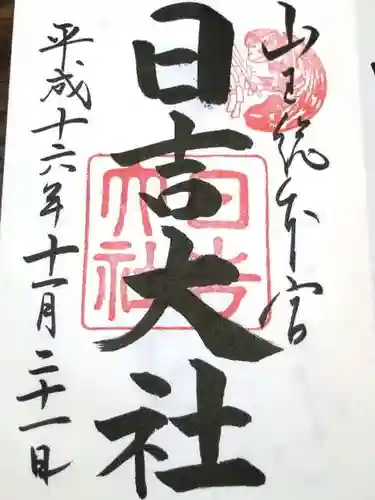 山王総本宮
日吉大社
平成十六年十一月二十一日
日吉大社